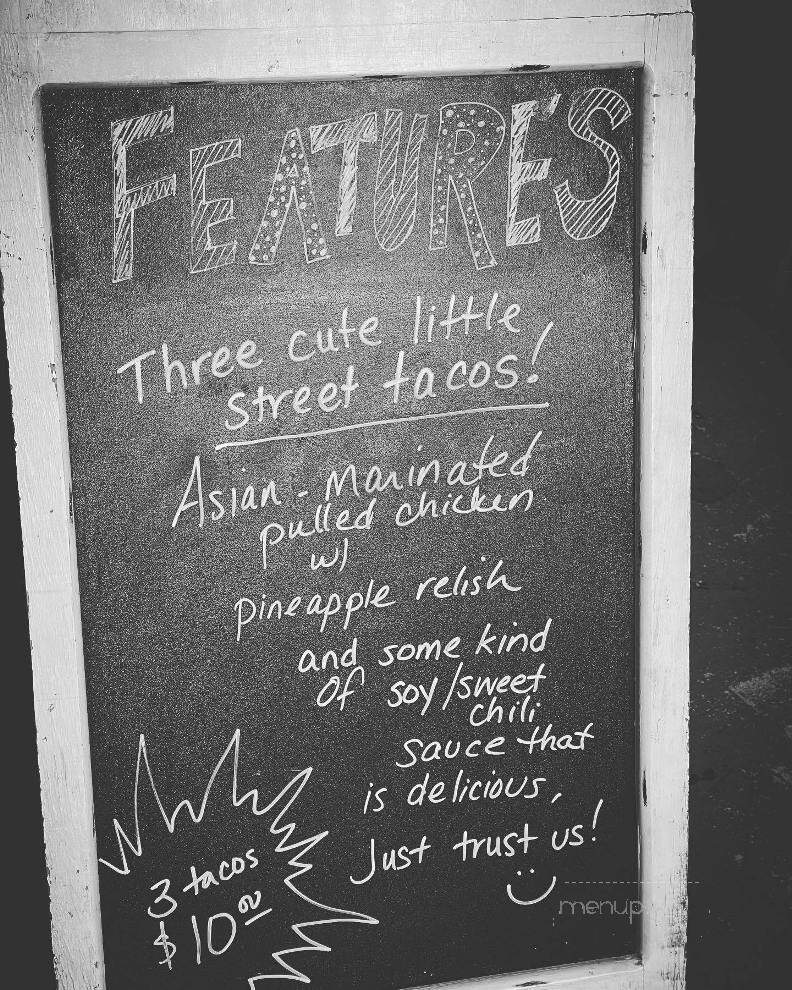 FEATURES
Three cute little
street tacos!
Asian - Marinated
pulled chicken
w/
pineapple relish
and some kind
of soy/sweet
chili
sauce that
is delicious,
Just trust us!
3 tacos
$10⁰⁰
menup